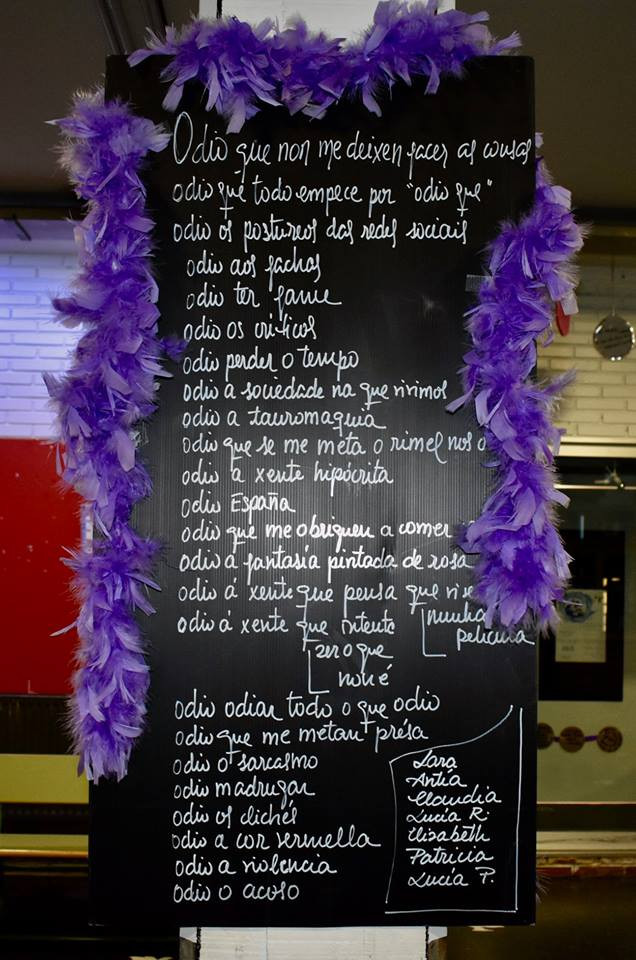 Odio que non me deixen facer as cousas
odio que todo empece por "odio que"
odio os postureos das redes sociais
odio aos fachas
odio ter fame
odio os críticos
odio perder o tempo
odio a sociedade na que vivimos
odio a tauromaquia
odio que se me meta o rimel nos o
odio á xente hipócrita
odio España
odio que me obriguen a comer
odio a fantasía pintada de rosa
odio á xente que pensa que vive
nunha
película
odio á xente que intenta
ser o que
non é
odio odiar todo o que odio
odio que me metan présa
odio o sarcasmo
odio madrugar
odio os clichés
odio a cor vermella
odio a violencia
odio o acoso
Sara
Antía
Claudia
Lucía R.
Elisabeth
Patricia
Lucía P.